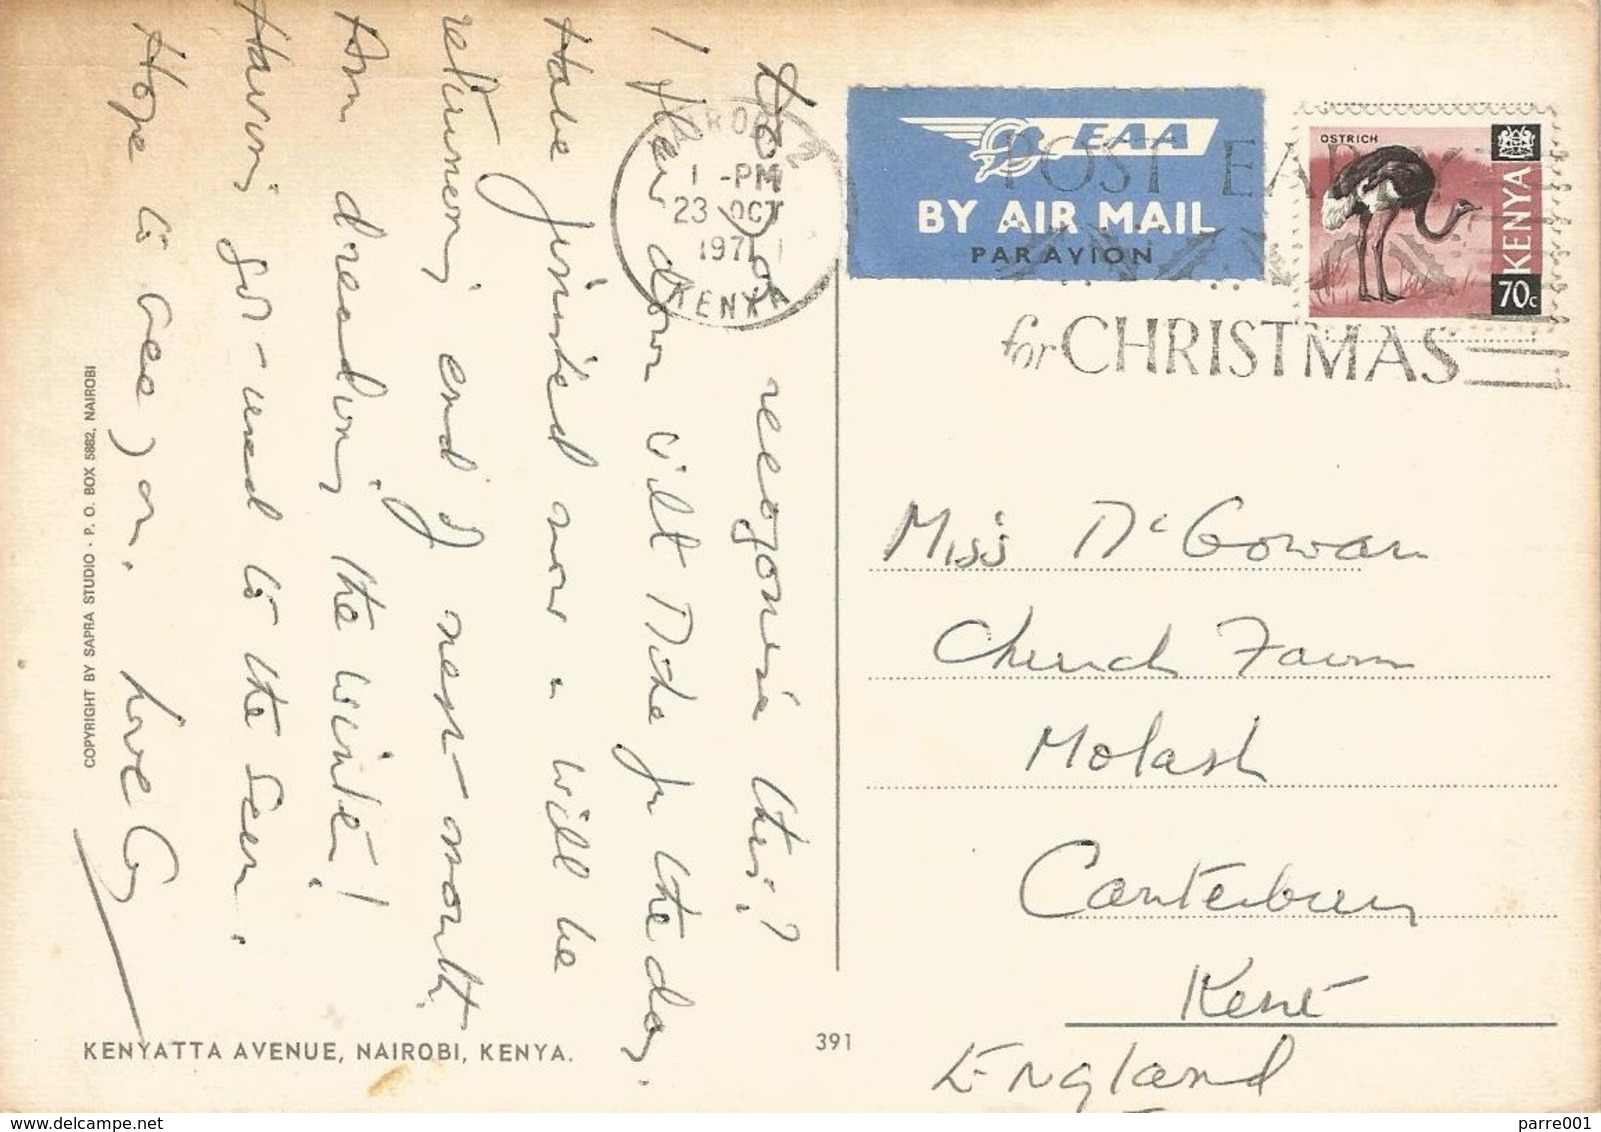 Do you recognise this?
I flew down with Mike for the day.
Have finished now & will be
returning end of next month.
Am dreading the winter!
Having got used to the Sun.
Hope to see you. Love G
COPYRIGHT BY SAPRA STUDIO - P. O. BOX 5882, NAIROBI
KENYATTA AVENUE, NAIROBI, KENYA.
391
NAIROBI
1 -PM
23 OCT
1971
KENYA
EAA
BY AIR MAIL
PAR AVION
POST EARLY
for CHRISTMAS
OSTRICH
KENYA
70c
Miss McGowan
Church Farm
Molash
Canterbury
Kent
England
parre001